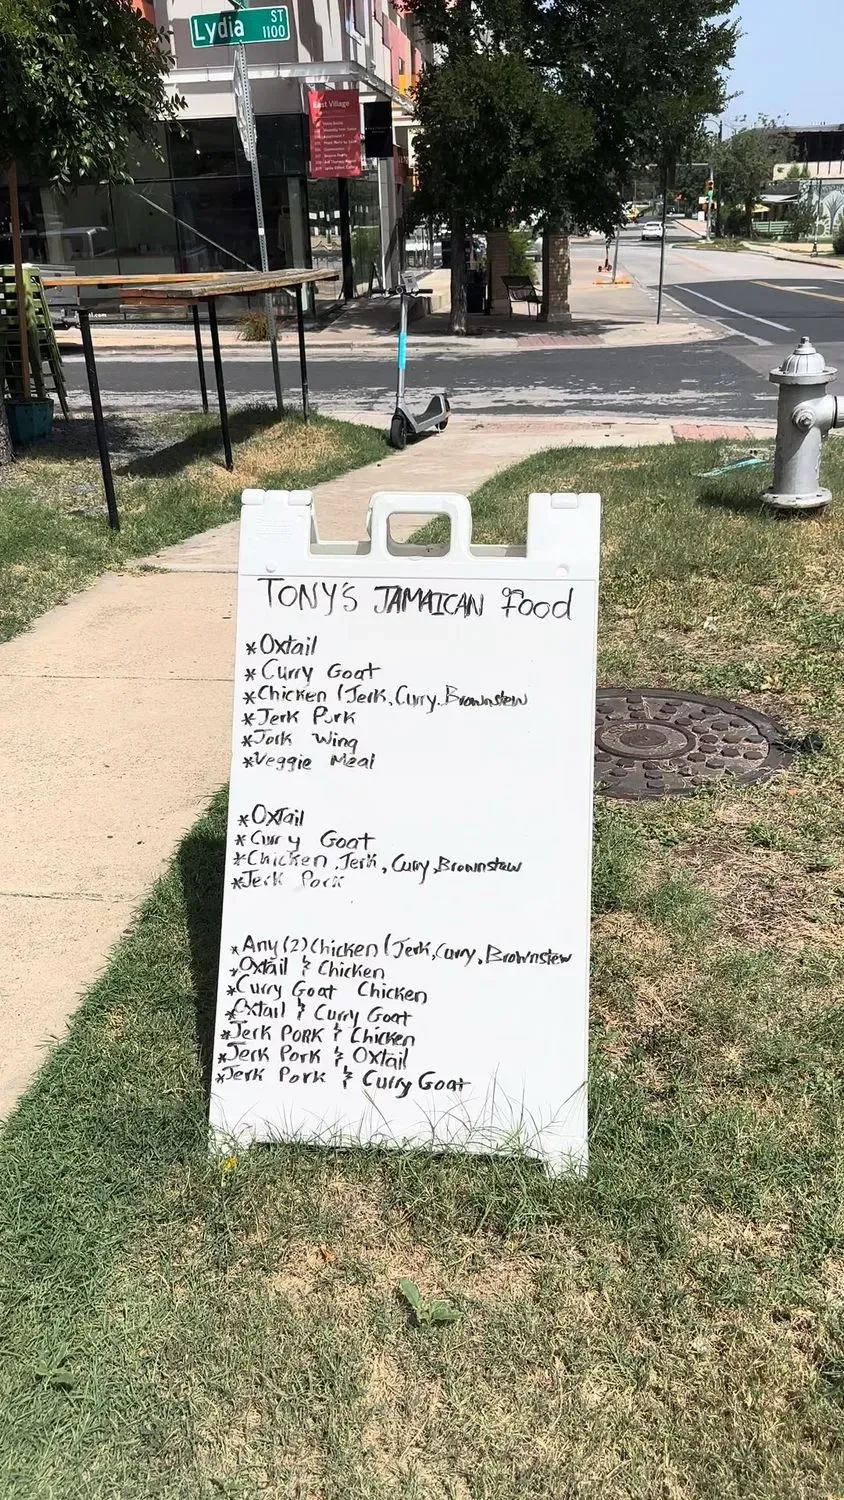 Lydia ST 1100
East Village
TONY'S JAMAICAN Food
*Oxtail
*Curry Goat
*Chicken (Jerk, Curry, Brownstew
*Jerk Pork
*Jerk Wing
*Veggie Meal
*Oxtail
*Curry Goat
*Chicken, Jerk, Curry, Brownstew
*Jerk Pork
*Any (2) Chicken (Jerk, Curry, Brownstew
*Oxtail & Chicken
*Curry Goat Chicken
*Oxtail & Curry Goat
*Jerk PORK & Chicken
*Jerk Pork & Oxtail
*Jerk Pork & Curry Goat